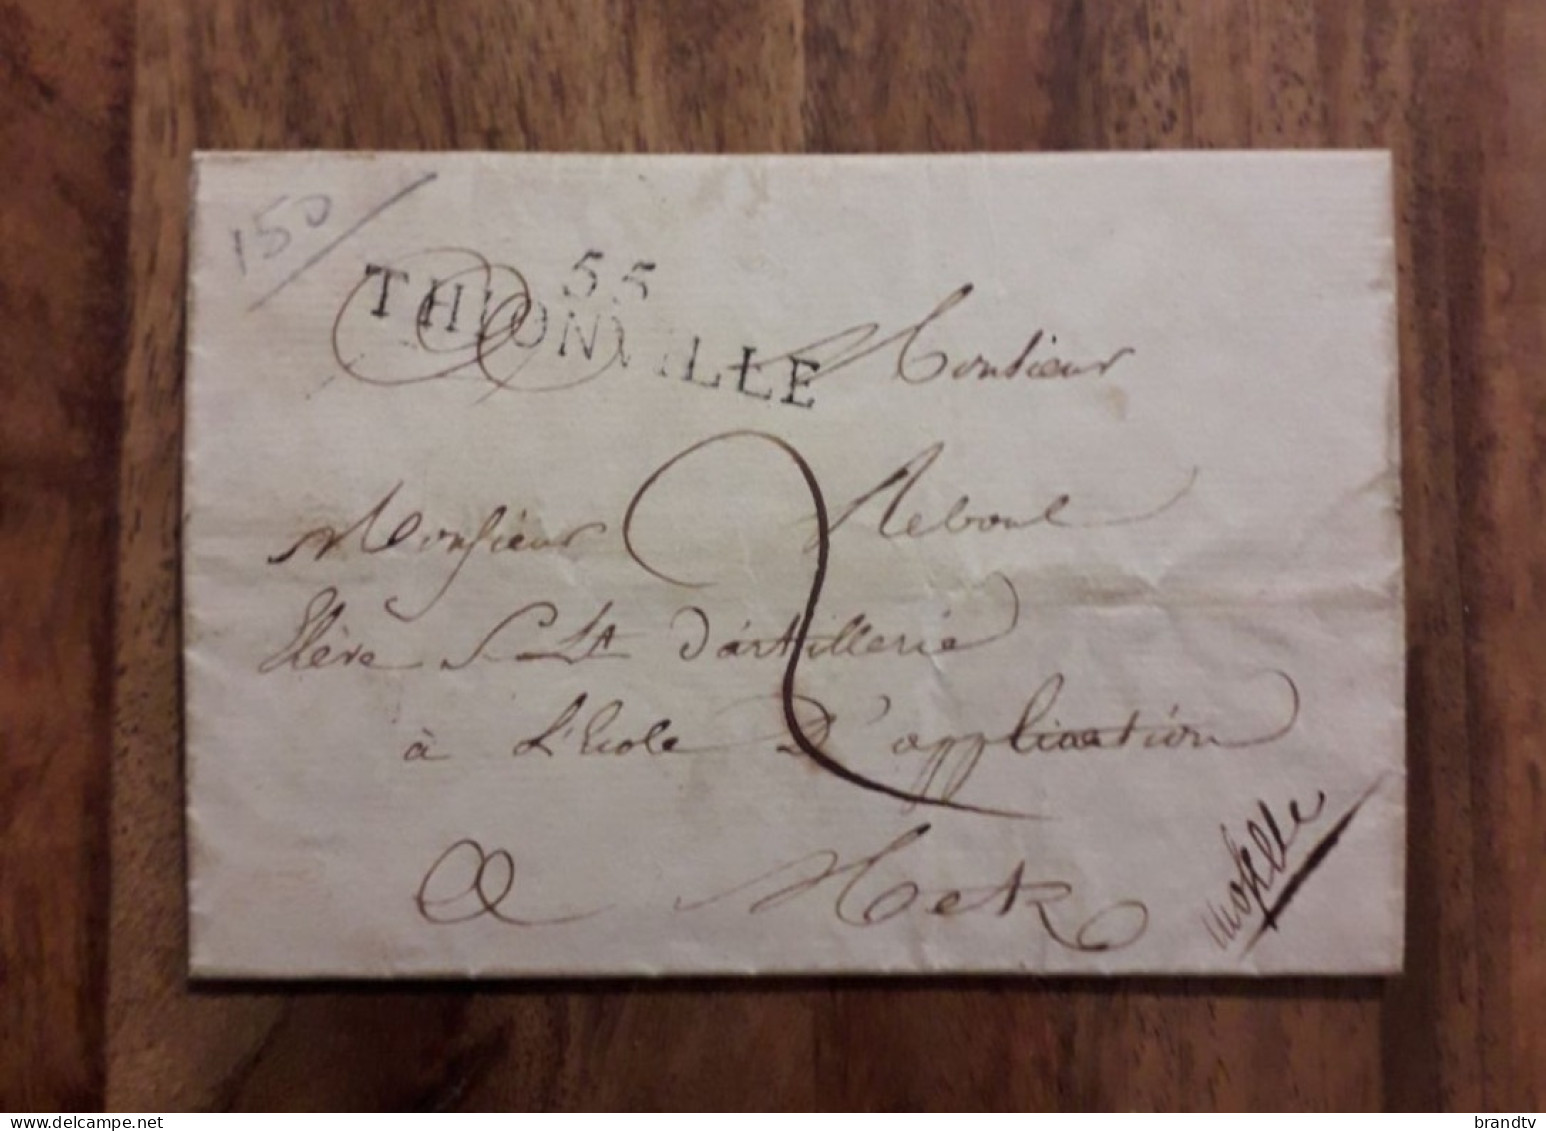 150
55
THIONVILLE
Monsieur
Monsieur Reboul
2
Elève S. Lt d'artillerie
à L'Ecole D'application
A Metz
Moselle
brandtv